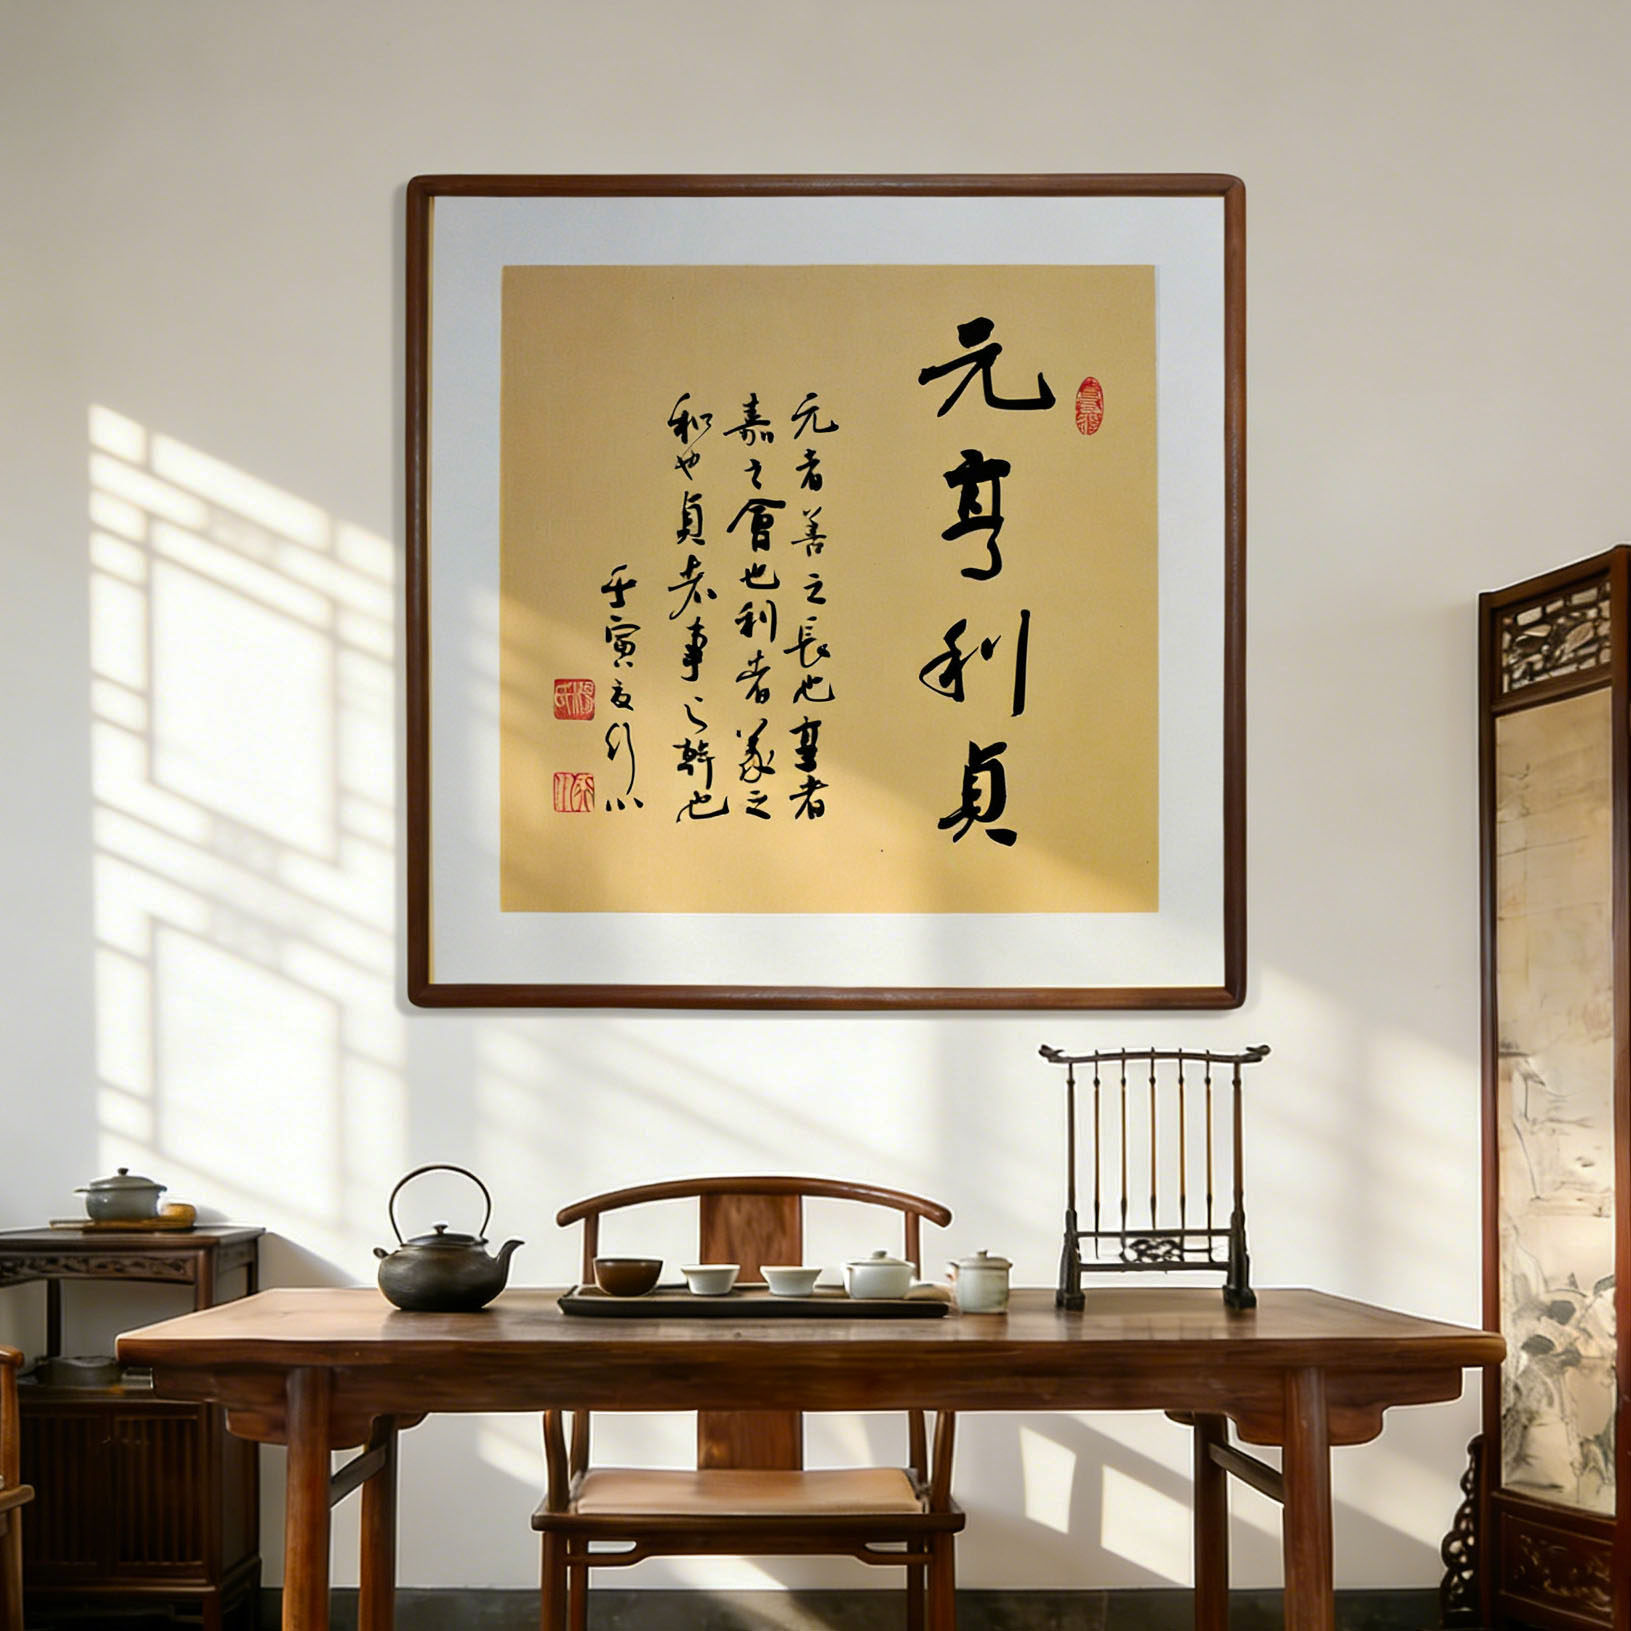 元亨利貞
元者善之長也亨者
嘉之會也利者義之
和也貞者事之幹也
壬寅夏